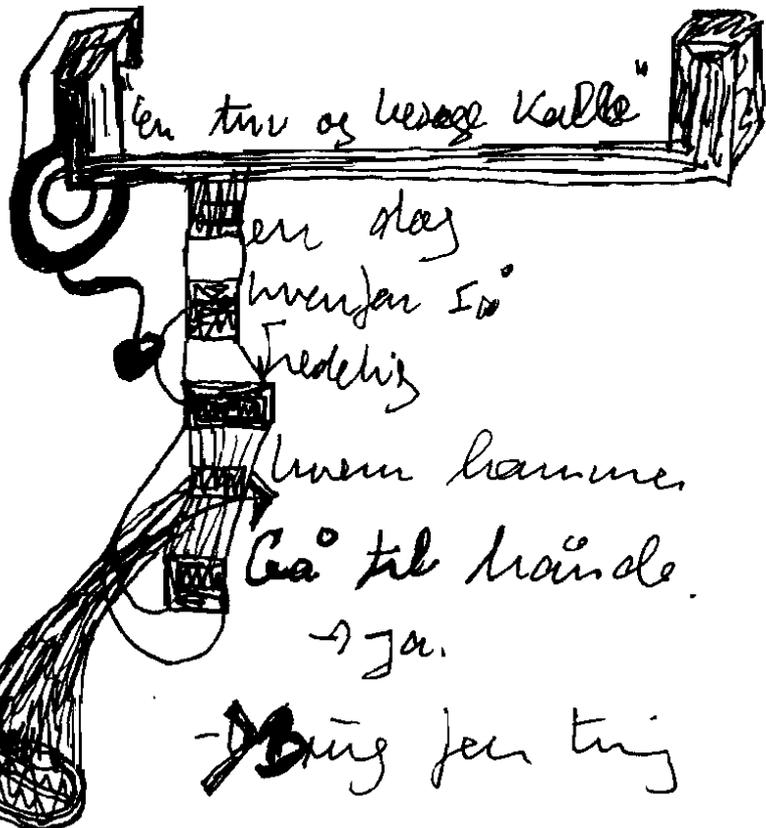 "en tur og besøge Kalle"
en dag
hvenfen
Fredelig
hvem kommer
Gå til hånde.
→ ja.
- Brug fen ting